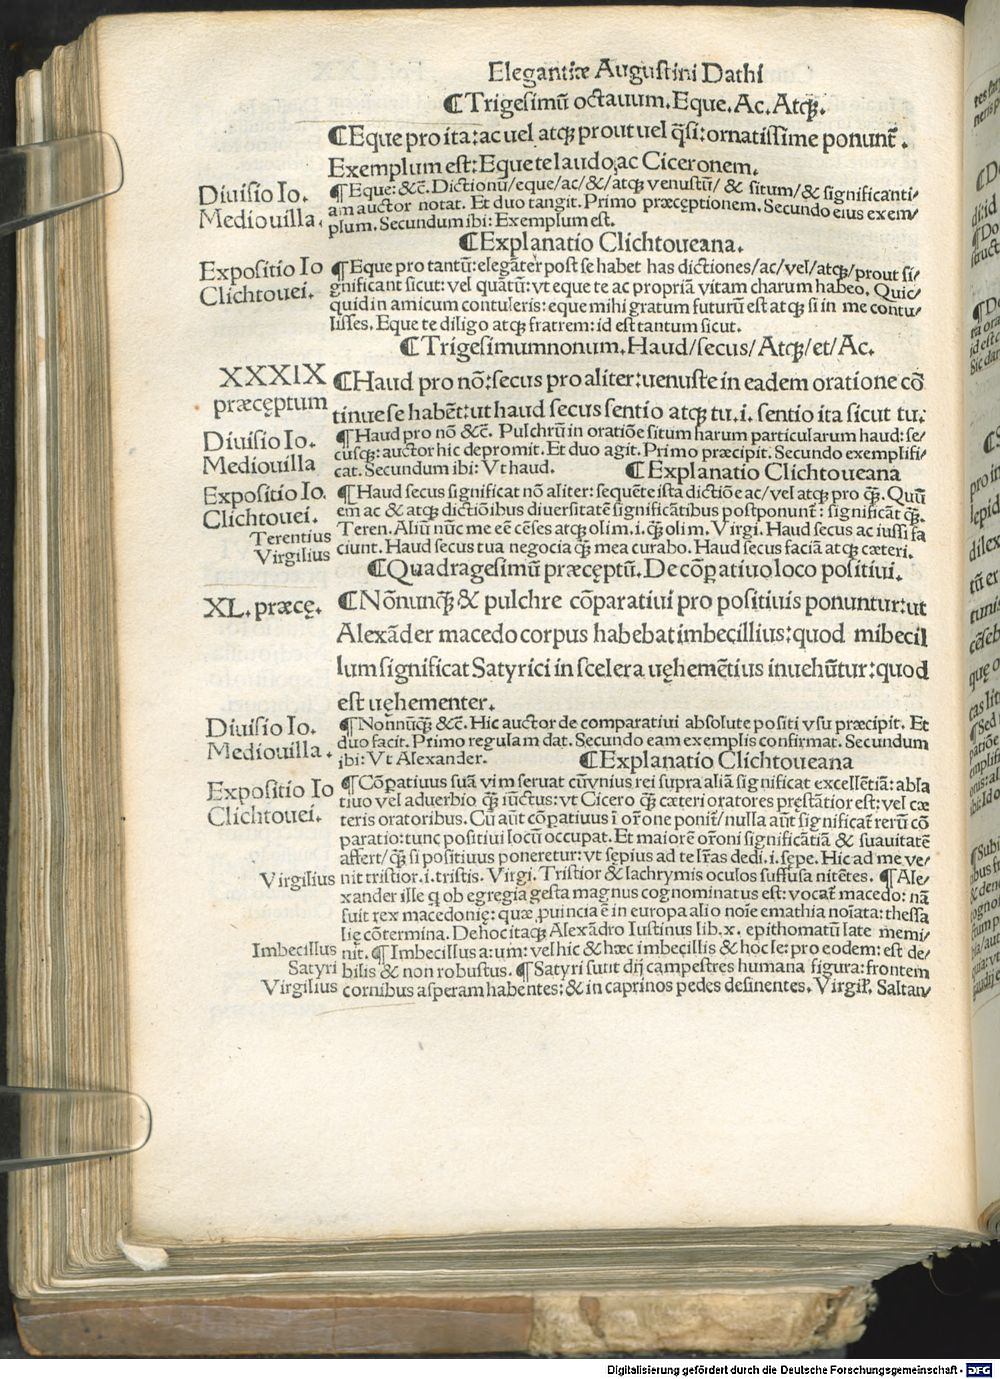 Elegantiæ Augustini Dathi
¶Trigesimũ octauum. Eque. Ac. Atqꝫ.
¶Eque pro ita: ac uel atqꝫ prout uel q̃si: ornatissime ponunt̃.
Exemplum est: Eque te laudo, ac Ciceronem.
Diuisio Io.
Mediouilla.
¶Eque: &c̃. Dictionũ/eque/ac/&/atqꝫ venustũ/ & situm/& significanti/
am auctor notat. Et duo tangit. Primo præcęptionem. Secundo eius exem/
plum. Secundum ibi: Exemplum est.
¶Explanatio Clichtoueana.
Expositio Io
Clichtouei.
¶Eque pro tantũ: elegãter post se habet has dictiones/ac/vel/atqꝫ/prout si/
gnificant sicut: vel quãtũ: vt eque te ac propriã vitam charum habeo. Quic
quid in amicum contuleris: eque mihi gratum futurũ est atqꝫ si in me contu/
lisses. Eque te diligo atqꝫ fratrem: id est tantum sicut.
¶Trigesimumnonum. Haud/secus/Atqꝫ/et/Ac.
XXXIX
præcęptum
¶Haud pro nõ: secus pro aliter: uenuste in eadem oratione cõ
tinue se habẽt: ut haud secus sentio atqꝫ tu. i. sentio ita sicut tu:
Diuisio Io.
Mediouilla
¶Haud pro nõ &c̃. Pulchrũ in oratiõe situm harum particularum haud: se/
cusqꝫ: auctor hic depromit. Et duo agit. Primo præcipit. Secundo exemplifi/
cat. Secundum ibi: Vt haud.
¶Explanatio Clichtoueana
Expositio Io.
Clichtouei.
Terentius
Virgilius
¶Haud secus significat nõ aliter: sequẽte ista dictiõe ac/vel atqꝫ pro q̃ꝫ. Quũ
em ac & atqꝫ dictiõibus diuersitatẽ significãtibus postponunt̃: significãt q̃ꝫ.
Teren. Aliũ nũc me eẽ cẽses atqꝫ olim. i. q̃ꝫ olim. Virgi. Haud secus ac iussi fa
ciunt. Haud secus tua negocia q̃ꝫ mea curabo. Haud secus faciã atqꝫ cæteri.
¶Quadragesimũ præcęptũ. De cõpatiuo loco positiui.
XL. præcę.
¶Nõnunqꝫ & pulchre cõparatiui pro positiuis ponuntur: ut
Alexãder macedo corpus habebat imbecillius: quod mibecil
lum significat Satyrici in scelera uęhemẽtius inuehũtur: quod
est uęhementer.
Diuisio Io.
Mediouilla.
¶Nonnũqꝫ &c̃. Hic auctor de comparatiui absolute positi vsu præcipit. Et
duo facit. Primo regulam dat. Secundo eam exemplis confirmat. Secundum
ibi: Vt Alexander.
¶Explanatio Clichtoueana
Expositio Io
Clichtouei.
¶Cõpatiuus suã vim seruat cũ vnius rei supra aliã significat excellẽtiã: abla
tiuo vel aduerbio q̃ꝫ iũctus: vt Cicero q̃ꝫ cæteri oratores pręstãtior est: vel cæ
teris oratoribus. Cũ aũt cõpatiuus ĩ or̃one ponit̃/nulla aũt significat̃ rerũ cõ
paratio: tunc positiui locũ occupat. Et maiorẽ or̃oni significãtiã & suauitatẽ
affert/q̃ꝫ si positiuus poneretur: vt sępius ad te lr̃as dedi. i. sępe. Hic ad me ve/
Virgilius
nit tristior. i. tristis. Virgi. Tristior & lachrymis oculos suffusa nitẽtes. ¶Ale/
xander ille q ob egregia gesta magnus cognominatus est: vocat̃ macedo: nã
fuit rex macedonię: quæ ꝓuincia ẽ in europa alio noĩe emathia noĩata: thessa
lię cõtermina. De hoc itaqꝫ Alexãdro Iustinus lib. x. epithomatũ late memi/
Imbecillus
Satyri
Virgilius
nit. ¶Imbecillus a: um: vel hic & hæc imbecillis & hoc le: pro eodem: est de/
bilis & non robustus. ¶Satyri sunt dij campestres humana figura: frontem
cornibus asperam habentes: & in caprinos pedes desinentes. Virgil̃. Saltan/
Digitalisierung gefördert durch die Deutsche Forschungsgemeinschaft - DFG